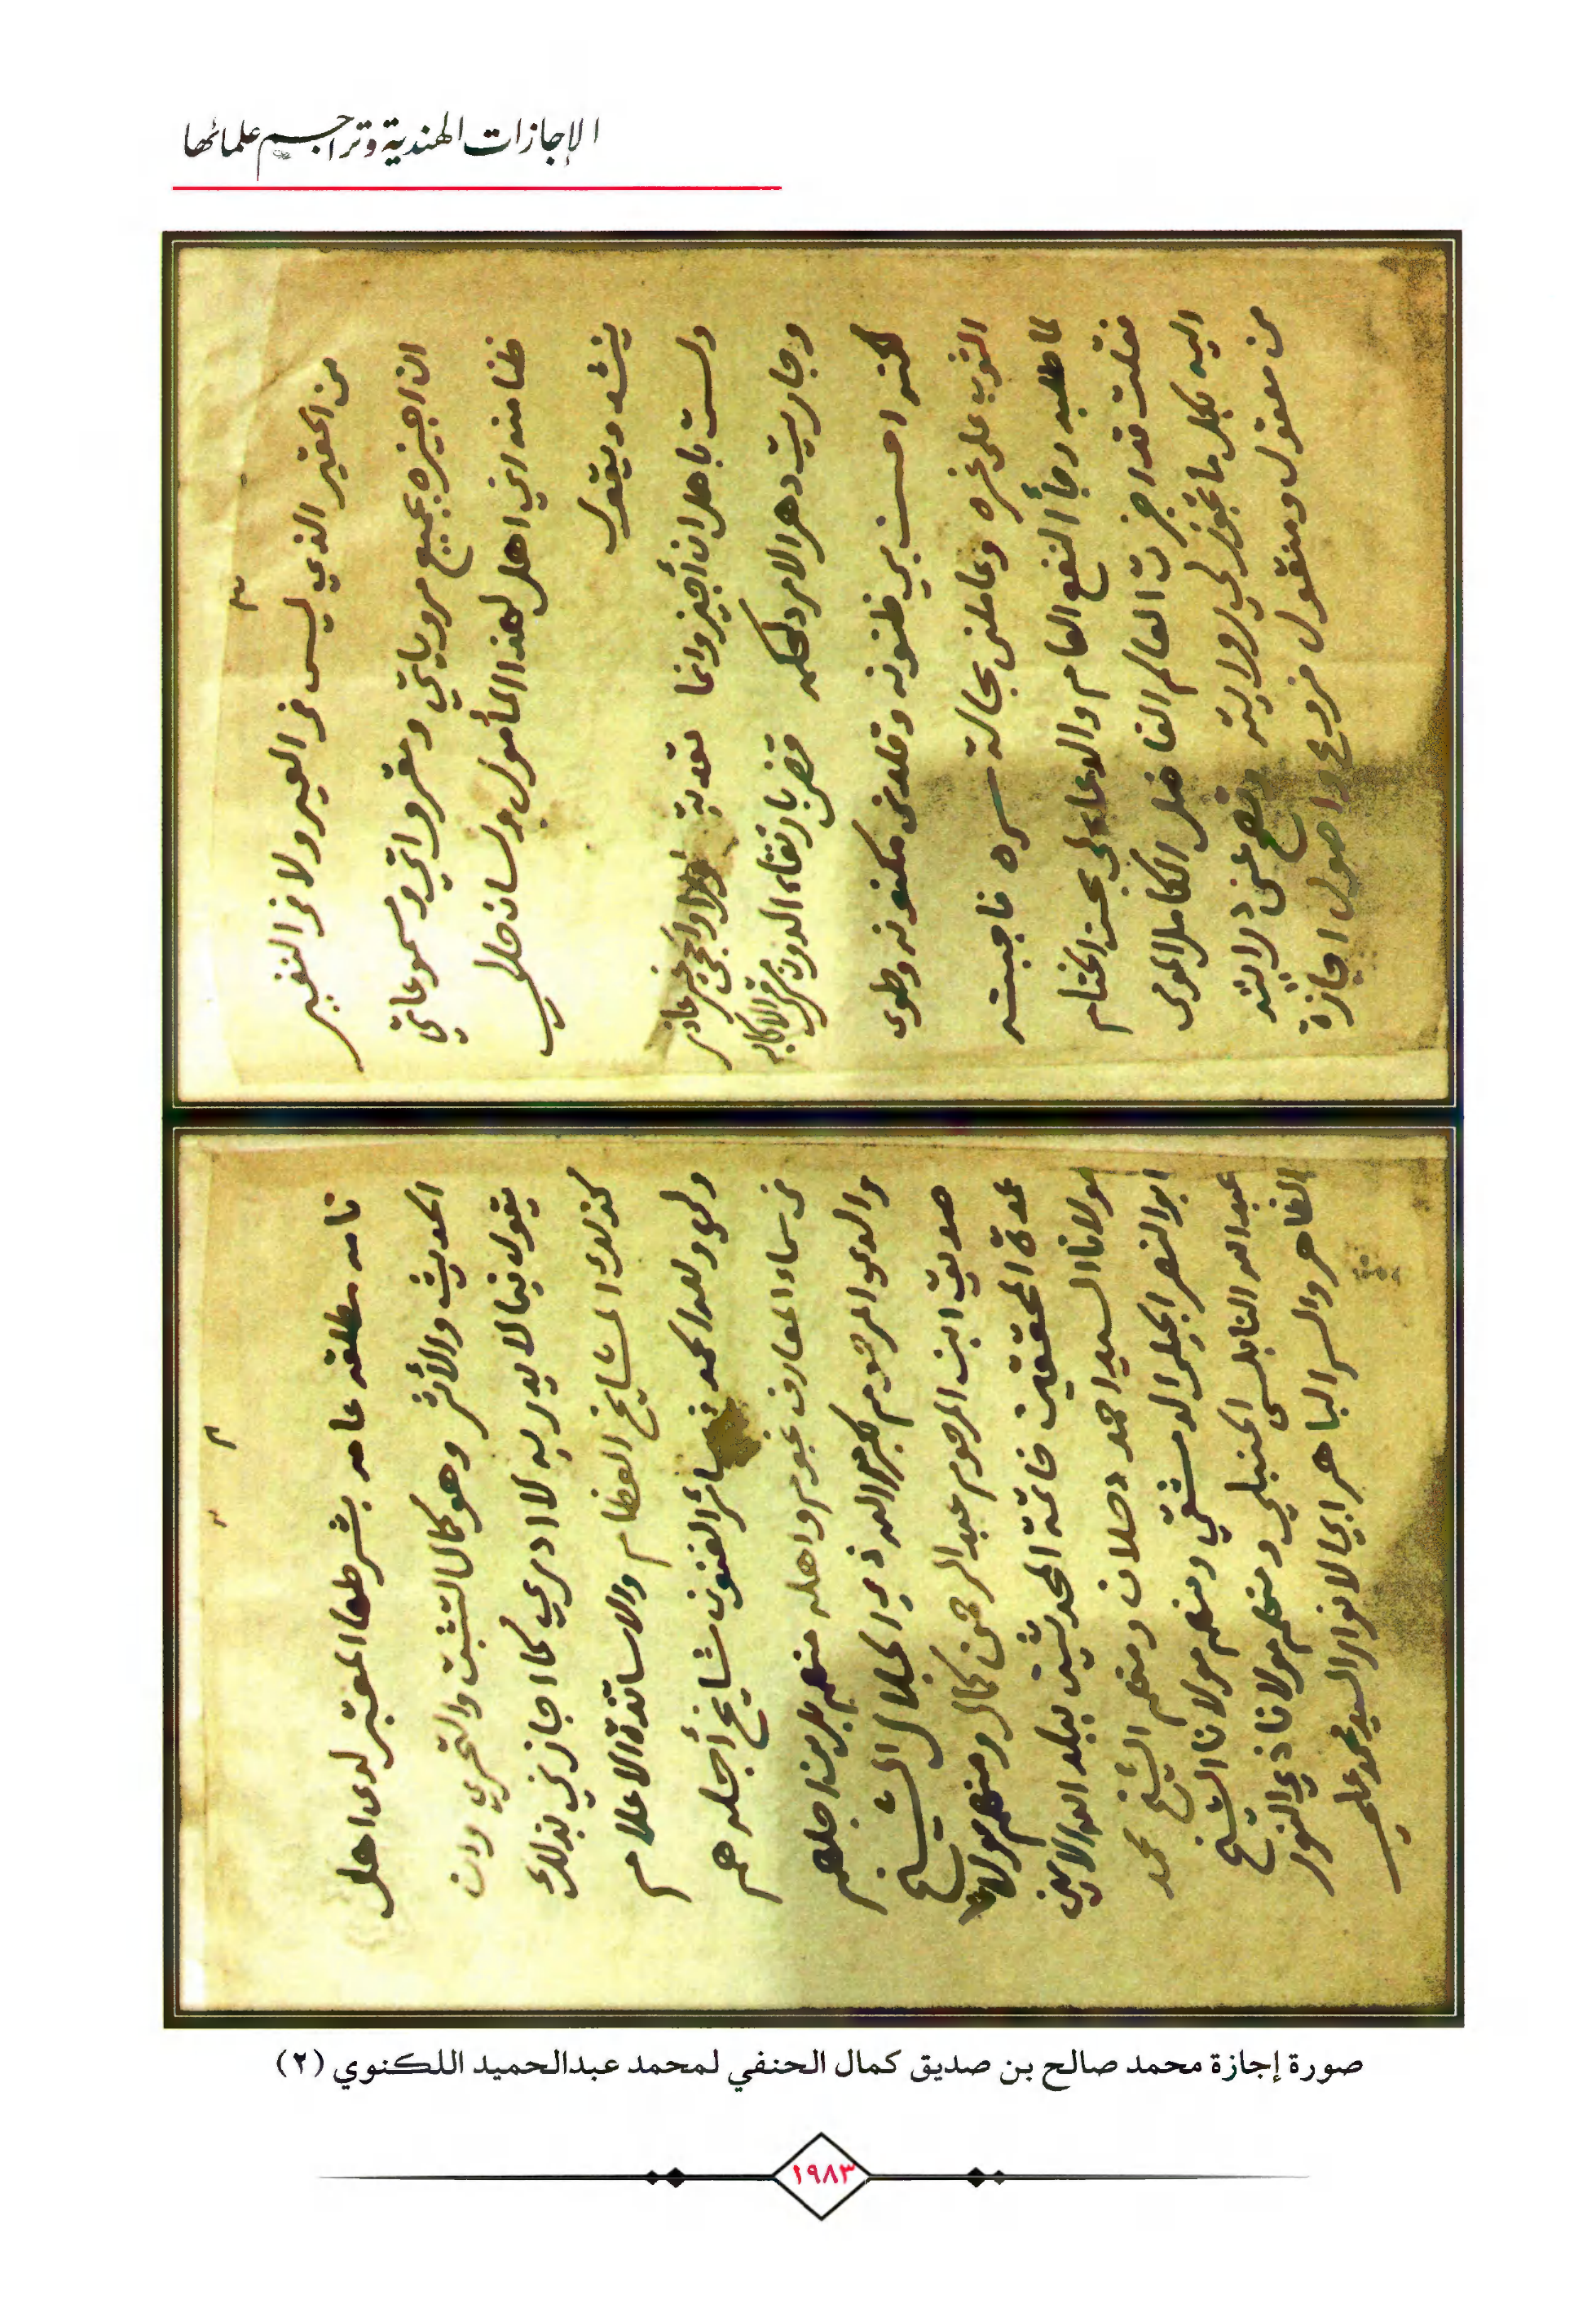 الإجازات الهندية وتراجم علمائها
٣
من الحقير الذي ليس في العير ولا في النفير
ان اجيزه بجميع مروياتي ومقرواتي ومسموعاتي
ظنا منه اني اهل لهذا المأمول ولسان حالي
ينشد ويقول
ولست باهل ان أجيز وانما تعديت
وجاريت دهر الامر
لكنه احسن بي ظنونه وقلدني مكنونه وطوى
الثوب على غره وعاملني بجمالة سره فاجبته
لما طلبه رجأ النفع العام والدعاء لي بحسن الختام
فقلت قد اجزت العالم الفاضل الكامل المومى
اليه بكل ما تجوز لي روايته وتصح عني درايته
من معقول ومنقول فروع واصول اجازة
٢
تامه مطلقه عامه بشرطها المعتبر لدى اهل
الحديث والأثر وهو كمال التثبت والتحري وان
يقول فيما لا يدريه لا ادري كما اجازني بذلك
كذلك المشايخ العظام والاساتذة الاعلام
ولي ولله الحمد في سائر الفنون مشايخ أجله هم
في سماء المعارف نجوم واهله منهم بل من اجلهم
والدي المرحوم بكرم الله ذي الجلال الشيخ
صديق ابن المرحوم عبد الرحمن كمال ومنهم مولانا
عمدة المحققين خاتمة المحدثين ببلد الله الامين
مولانا السيد احمد دحلان ومنهم الشيخ محمد
ابو النصر الدمشقي ومنهم مولانا الشيخ
عبد الله النابلسي الحنبلي ومنهم مولانا ذي النور
الظاهر والسر الباهر ابي الانوار السيد محمد علي
صورة إجازة محمد صالح بن صديق كمال الحنفي لمحمد عبدالحميد اللكنوي (٢)
١٩٨٣